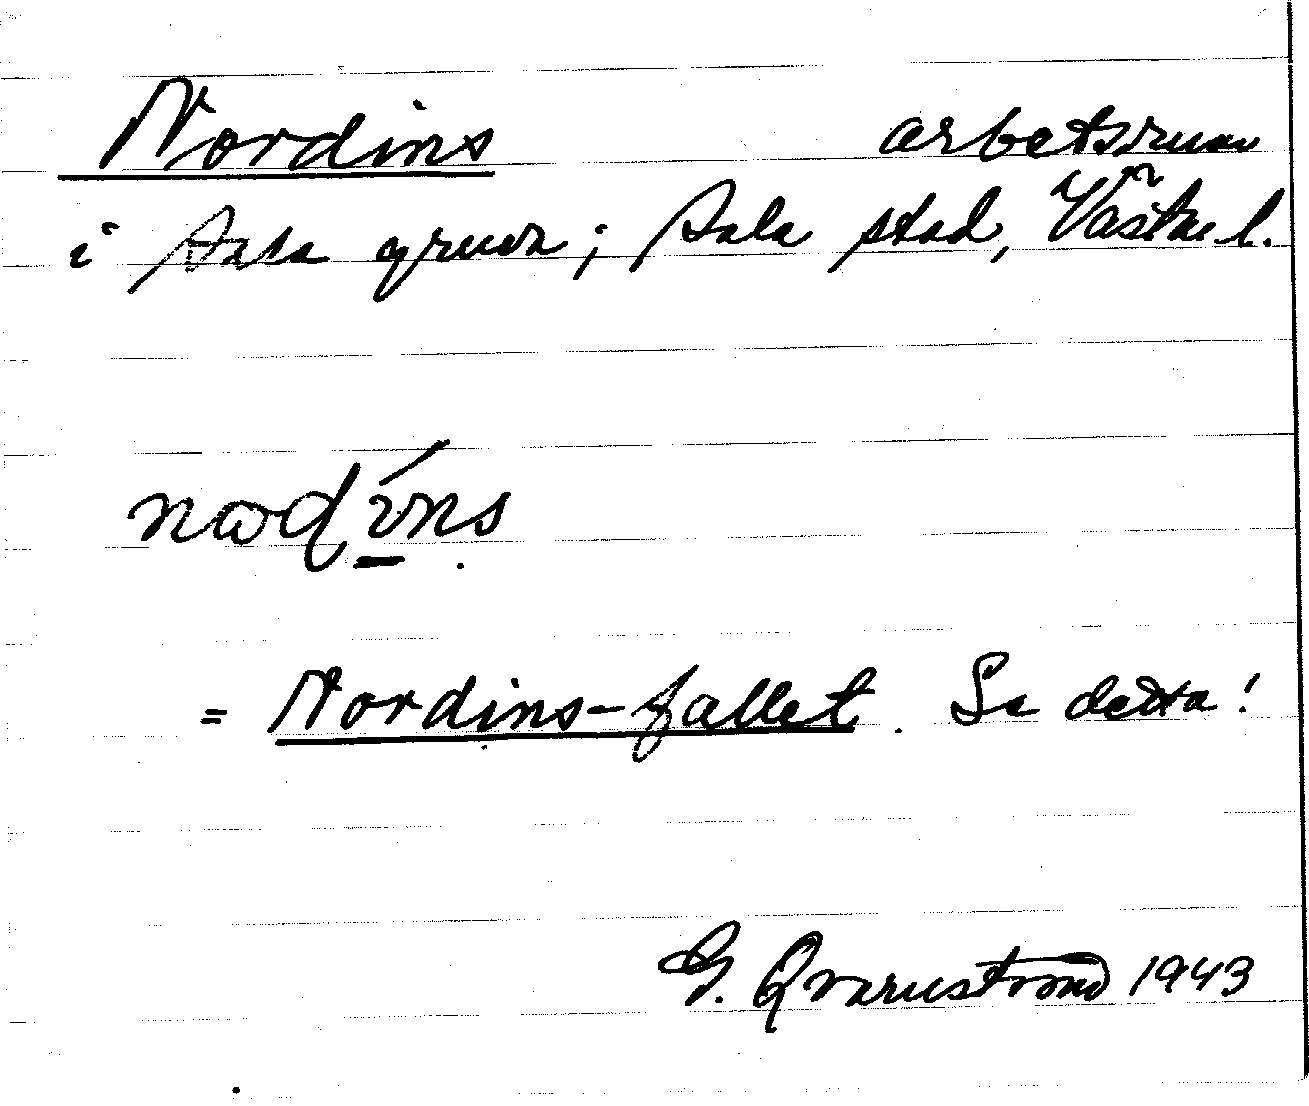 Nordins arbetsrum
i Sala gruva; Sala stad, Västm. l.
nɷdíns
= Nordins-fallet. Se detta!
G. Qvarnström 1943